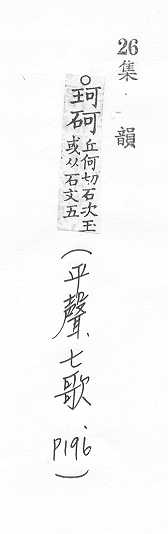 26集韻
○珂砢丘何切石次玉
或从石文五
(平聲、七歌 P196)